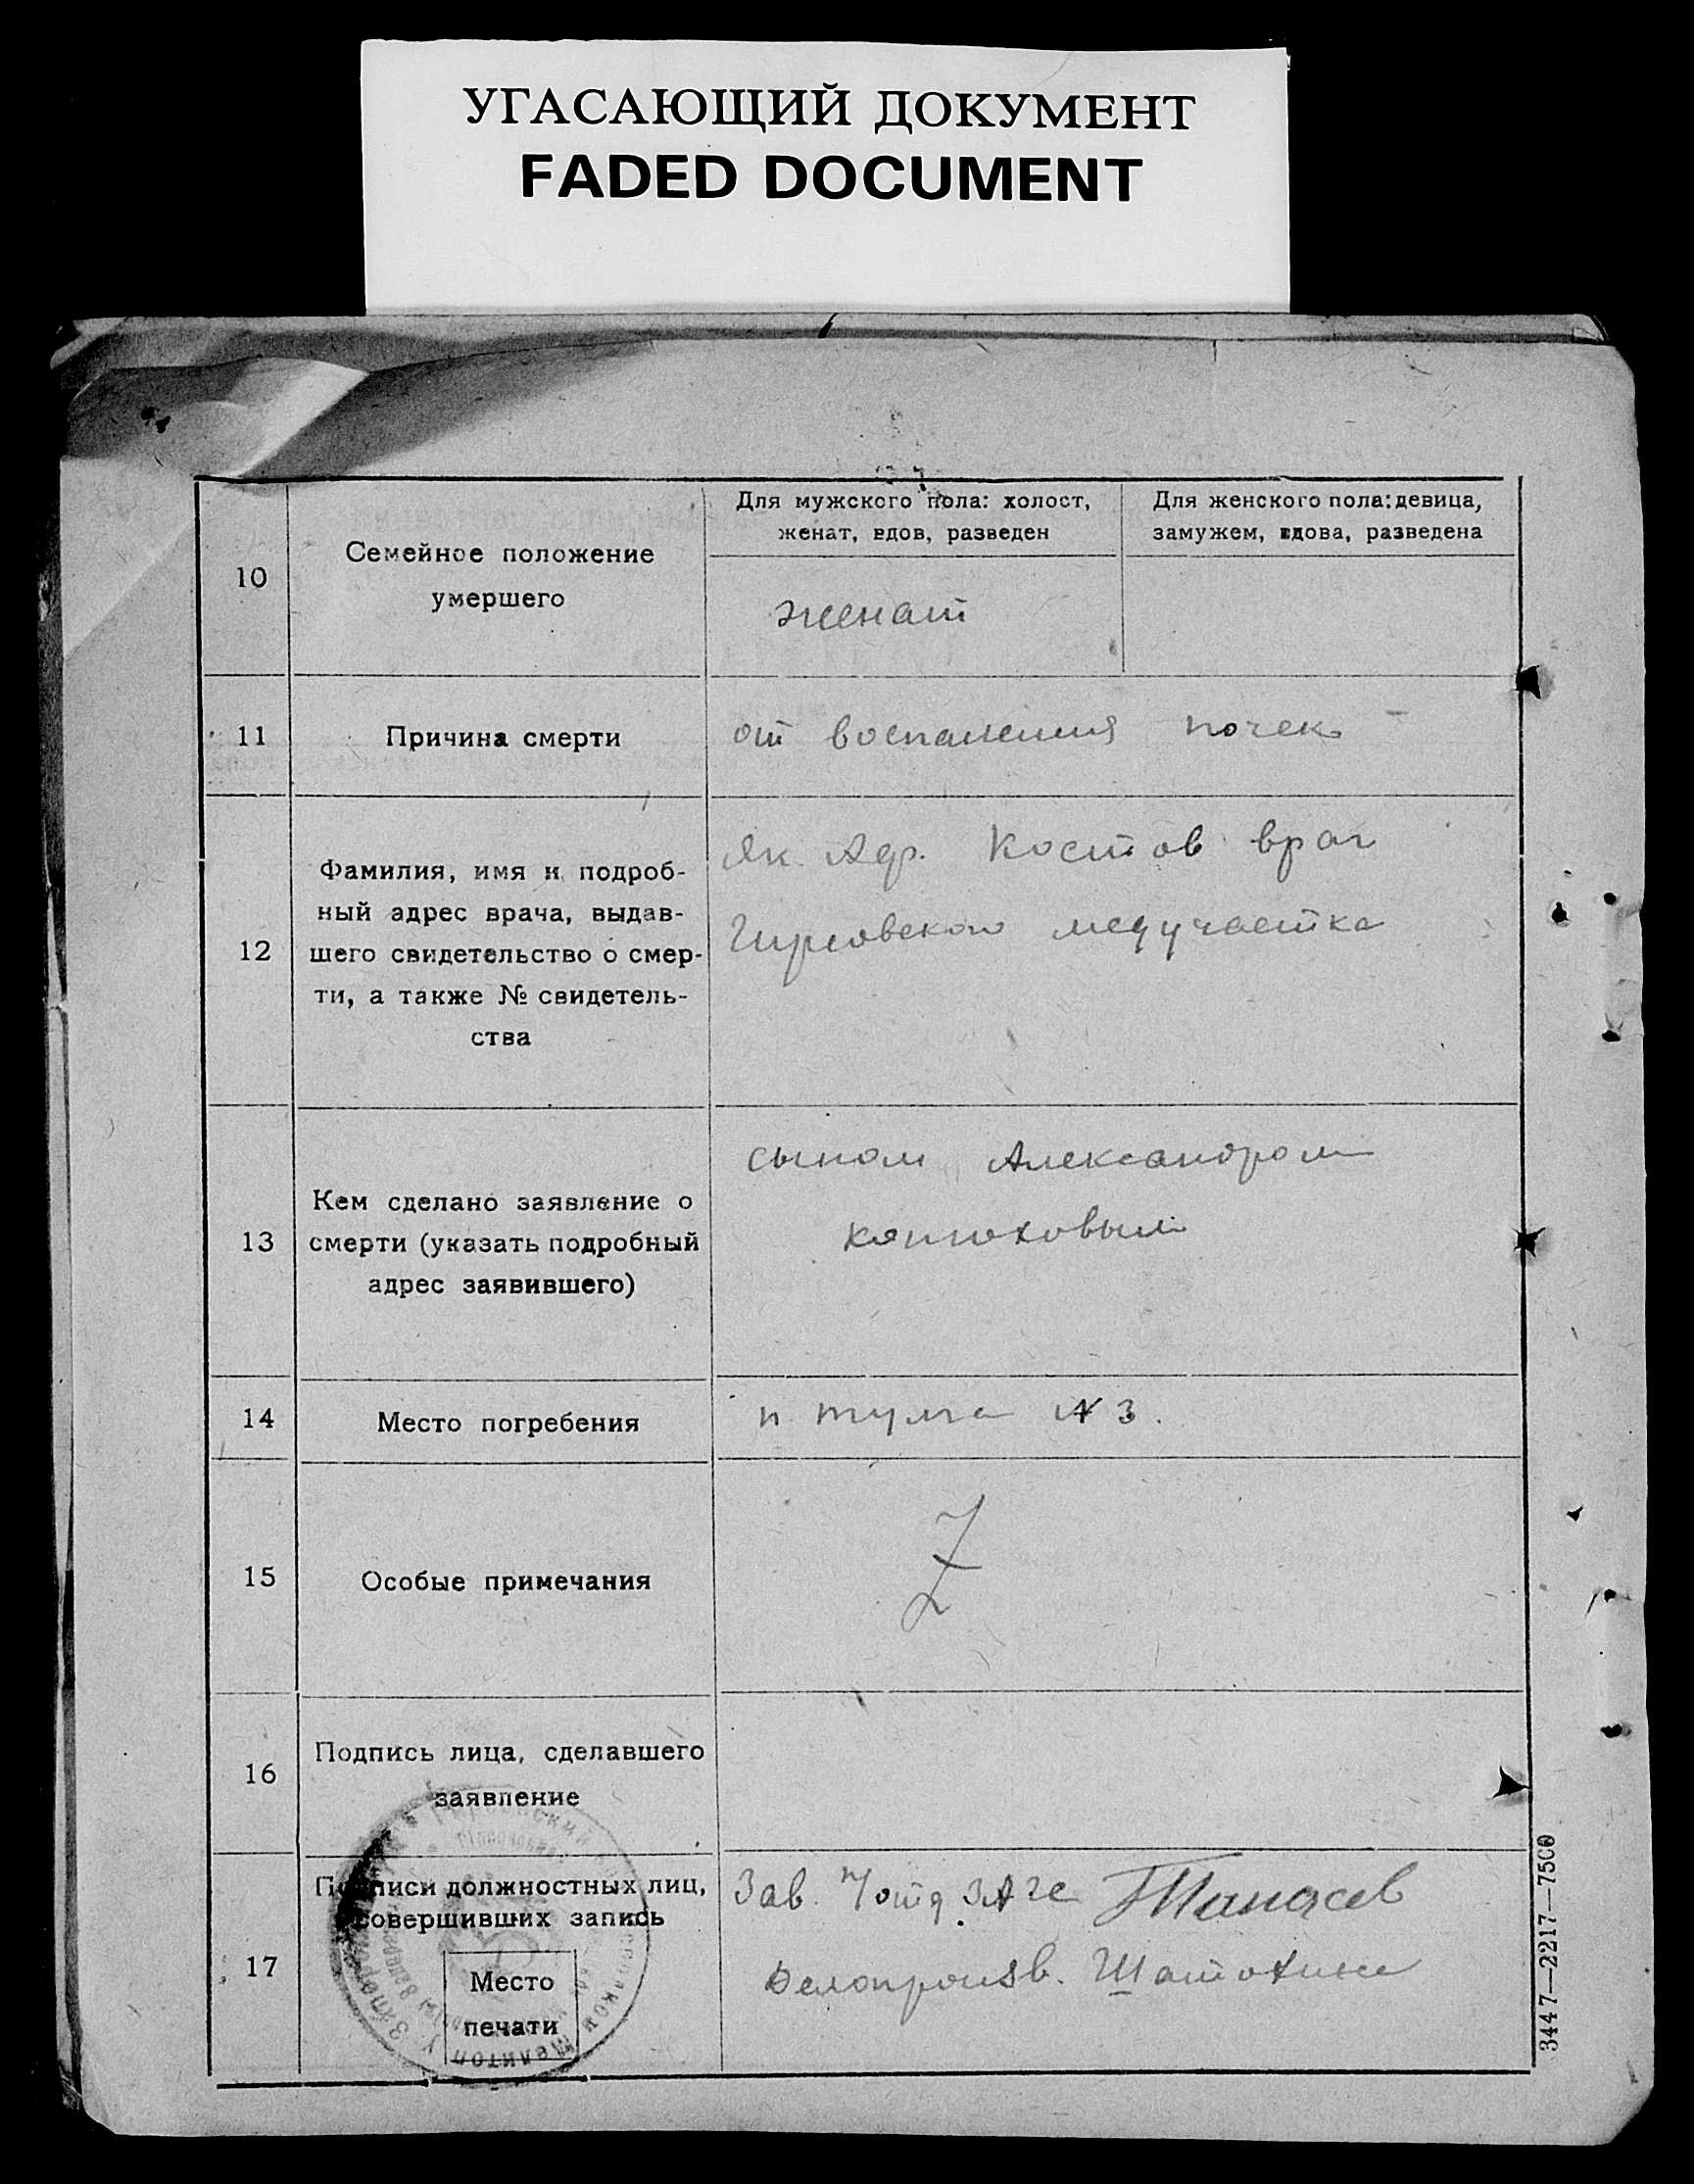 УГАСАЮЩИЙ ДОКУМЕНТ
FADED DOCUMENT
10
Семейное положение
умершего
Для мужского пола: холост,
женат, вдов, разведен
Для женского пола: девица,
замужем, вдова, разведена
женат
11
Причина смерти
от воспаления почек
12
Фамилия, имя и подроб-
ный адрес врача, выдав-
шего свидетельство о смер-
ти, а также № свидетель-
ства
Як. Костов врач
медучастка
13
Кем сделано заявление о
смерти (указать подробный
адрес заявившего)
сыном Александром
14
Место погребения
N 3.
15
Особые примечания
Z
16
Подпись лица, сделавшего
заявление
17
Подписи должностных лиц,
совершивших запись
Место
печати
Зав.
Делопроизв.
3447—2217—7500